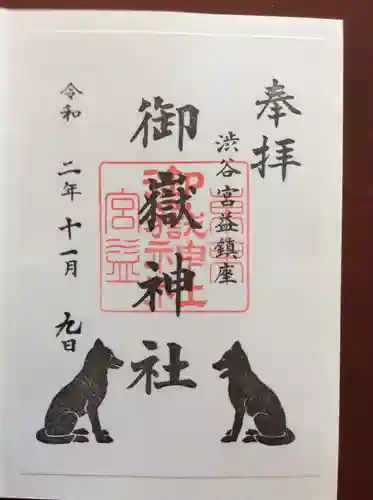 奉拝
渋谷宮益鎮座
御嶽神社
令和 二年 十一月 九日
宮益
御嶽神社